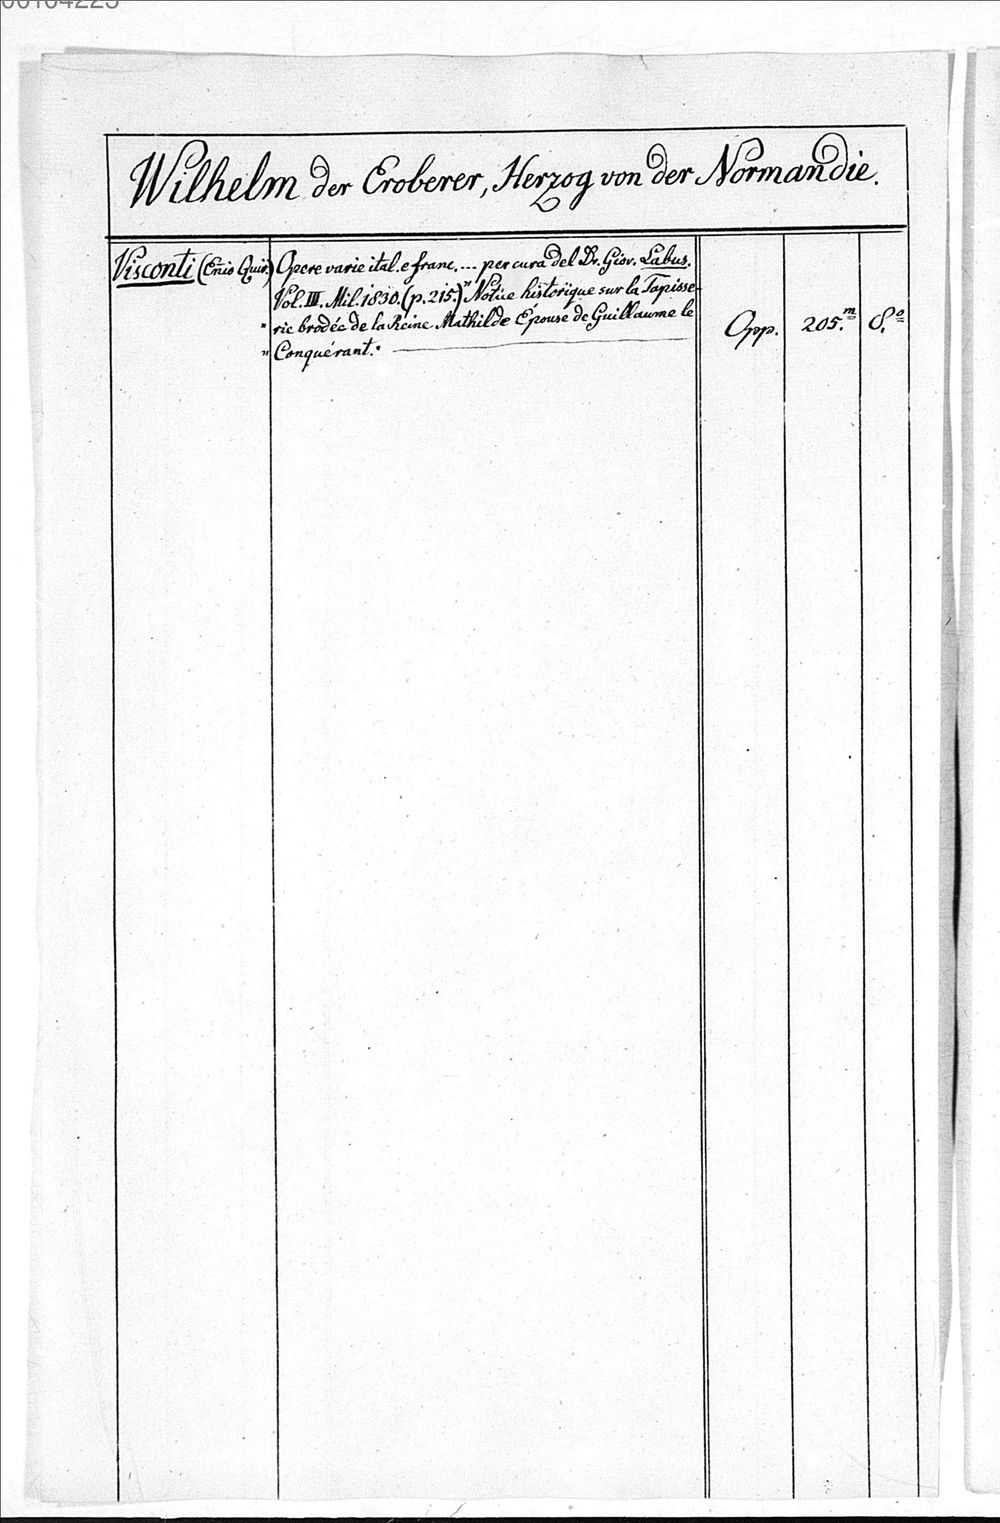 Wilhelm der Eroberer, Herzog von der Normandie.
Visconti (Enio Quir.) Opere varie ital. e franc. ... per cura del Dr. Giov. Labus.
Vol. III. Mil. 1830. (p. 215.) "Notice historique sur la Tapisse-
" rie brodée de la Reine Mathilde Épouse de Guillaume le
" Conquérant."
Opp. 205.m 8.o